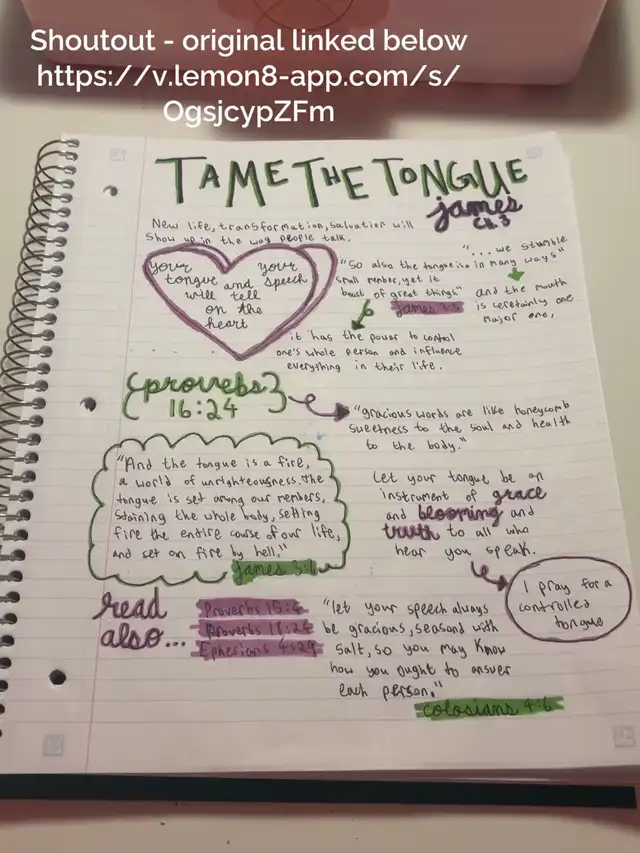 Shoutout - original linked below
https://v.lemon8-app.com/s/
OgsjcypZFm
TAME THE TONGUE
james
Ch.3
New life, transformation, salvation will
show up in the way people talk.
your your
tongue and speech
will tell
on the
heart
"So also the tongue is a
small member, yet it
boast of great things"
james 3:5
"...we stumble
in many ways"
and the mouth
is certainly one
major one,
it has the power to control
one's whole person and influence
everything in their life.
{proverbs}
16:24
"gracious words are like honeycomb
sweetness to the soul and health
to the body."
"And the tongue is a fire,
a world of unrighteousness. The
tongue is set among our members,
staining the whole body, setting
fire the entire course of our life,
and set on fire by hell."
james 3:6
Let your tongue be an
instrument of grace
and blooming and
truth to all who
hear you speak.
I pray for a
controlled
tongue
read
also...
Proverbs 15:4
Proverbs 18:24
Ephesians 4:29
"let your speech always
be gracious, seasond with
salt, so you may know
how you ought to answer
each person."
colosians 4:6